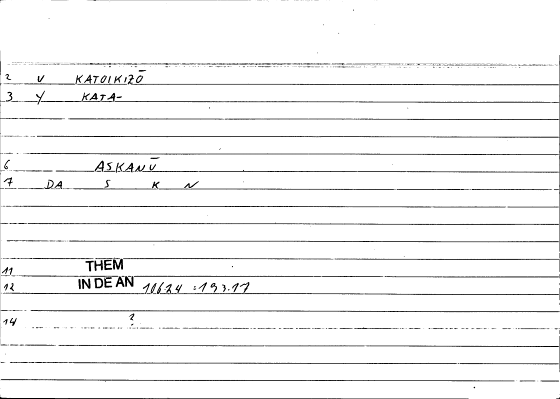 2 V KATOIKIZŌ
3 Y KATA-
6 ASKANŪ
7 DA S K N
11 THEM
12 IN DE AN 10624 :193.17
14 ?